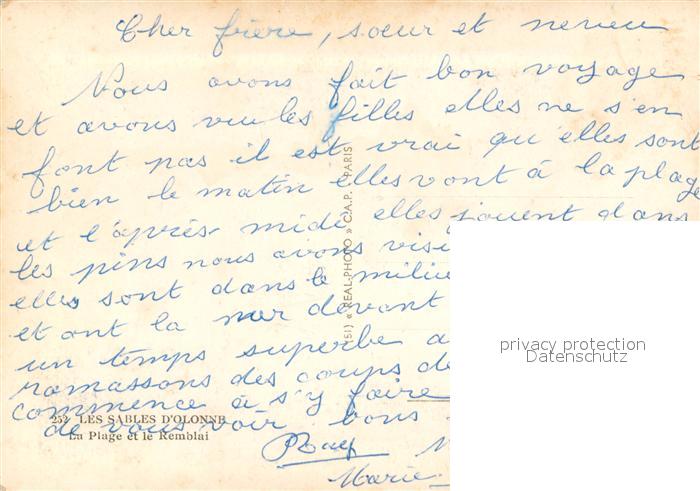 Cher frère, sœur et neveu
Nous avons fait bon voyage
et avons vu les filles elles ne s'en
font pas il est vrai qu'elles sont
bien le matin elles vont à la plage
et l'après-midi elles jouent dans
les pins nous avons visi
elles sont dans le milieu
et ont la mer devant
un temps superbe a
ramassons des coups de
commence à s'y faire
de vous voir bons
Marie
252 LES SABLES D'OLONNE
La Plage et le Remblai
« REAL-PHOTO » C.A.P. PARIS
privacy protection
Datenschutz